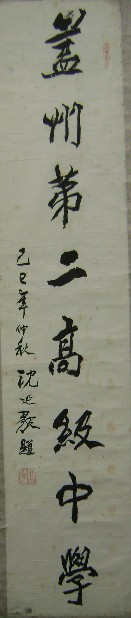 蓋州第二高級中學
己巳年仲秋 沈延毅題